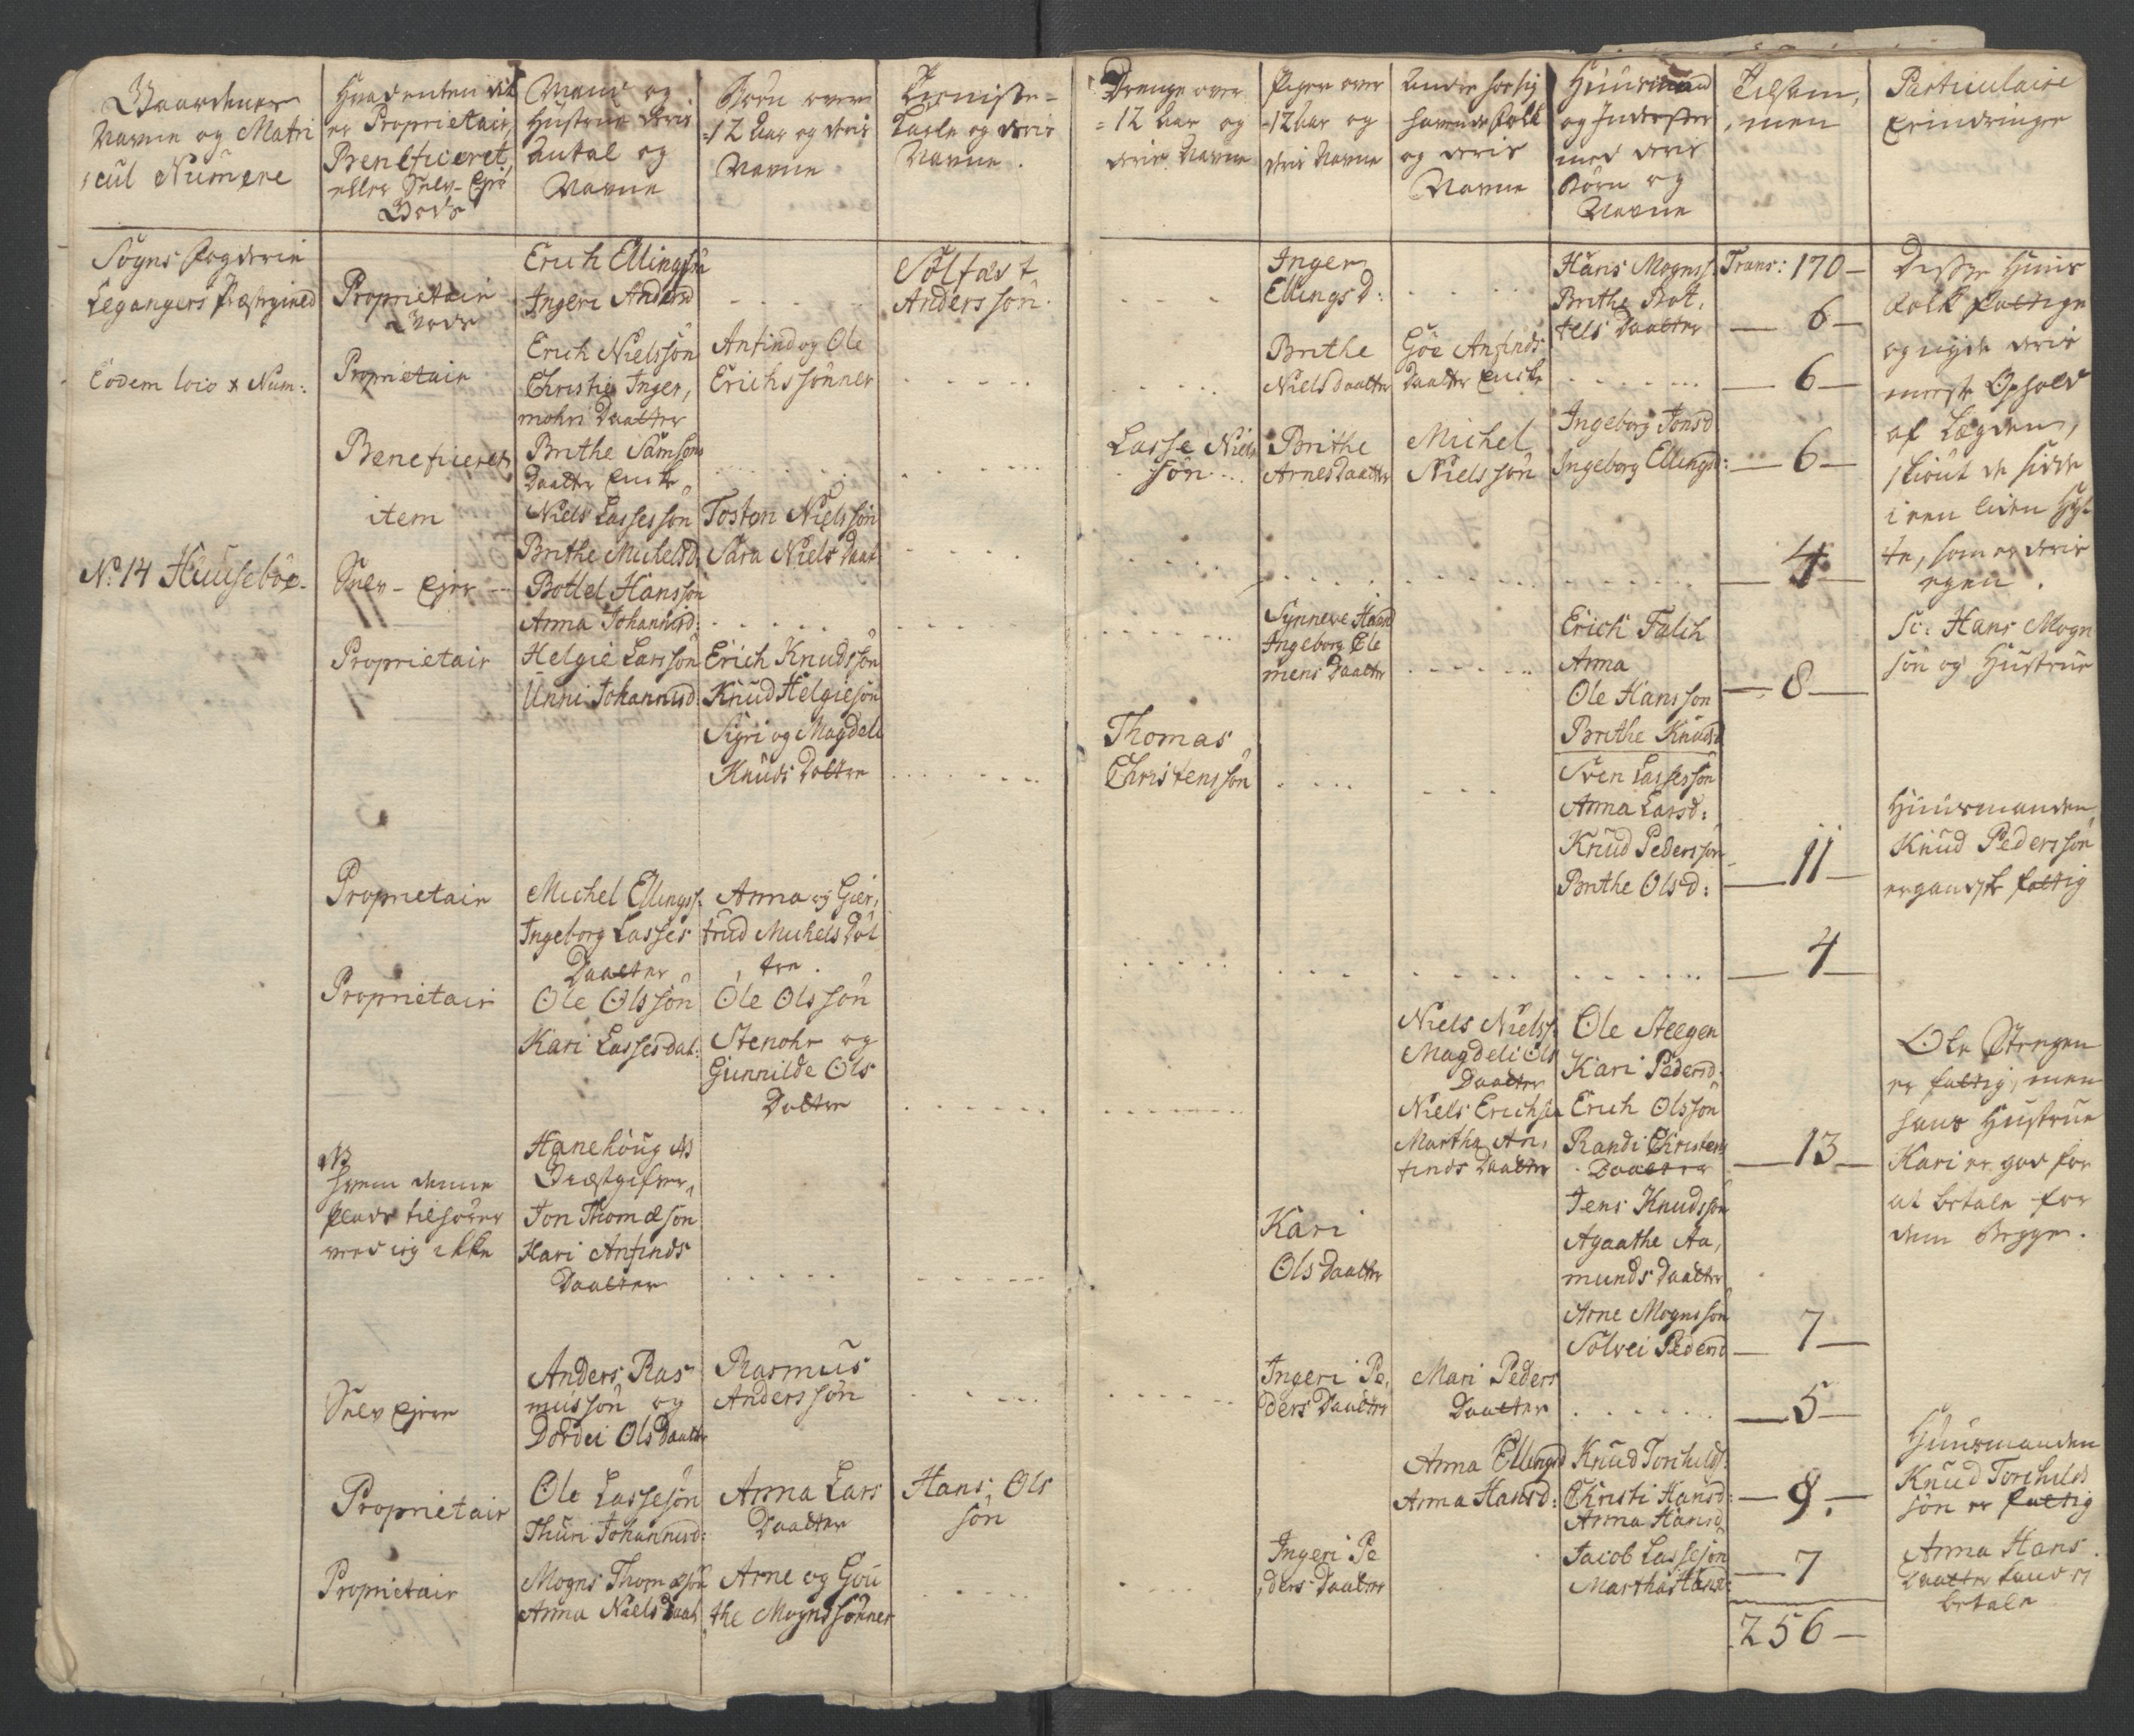 Gaardenes
Navne og Matri
cul Numere
Hvad enten det
er Proprietair,
Beneficeret,
eller Selv-Ejer
Gods
Mand og
Hustrue deris
Antal og
Navne
Børn over
12 Aar og deris
Navne
Tieniste-
Karle og deris
Navne.
Drenge over
12 Aar og
deris Navne
Piger over
12 Aar og
deris Navne
Andre hos sig
havende Folk
og deris
Navne
Huusmænd
og Inderster
med deris
Børn og
Navne
Tilsam,
men
Particulaire
Erindringer
Sogns Fogderie
Legangers Præstegield
Proprietair
Gods
Erich Ellingssøn
Ingeri Andersd
Anderssøn
Inger
Ellings D:
Hans Mognss.
Brithe Bot,
tels Daatter
Trans: 170
6
Disse Huus
Folk fattige
og nyde deris
meste Ophold
af Lægden,
skiønt de sidde
i een liden Hyt
te, som er deris
egen.
Sc: Hans Mogn
søn og Hustrue
Eodem loco & Num:
Proprietair
Erich Nielssøn
Christie Inger,
mohri Daatter
Anfind og Ole
Erichssønner
Brithe
Nielsdaatter
Göe Anfinds
Daatter Enke
6
Beneficeret
Brithe Samsons
Daatter Enke
Lasse Niels
søn
Brithe
Arnes Daatter
Michel
Nielssøn
Ingeborg Jonsd
Ingeborg Ellingsd:
6
item
Niels Lassessøn
Brithe Michelsd.
Tosten Nielssøn
Sara Niels Daat
4
No. 14 Huusebøe
Selv-Ejer
Bottel Hanssøn
Anna Johannisd:
Synneve Hansd
Ingeborg Cle
mens Daatter
Erich Falch
Anna
Ole Hanssøn
Brithe Knudsd
8
Proprietair
Helgie Larssøn
Unni Johannisd:
Erich Knudssøn
Knud Helgiesøn
Sigri og Magdeli
Knuds Døttre
Thomas
Christenssøn
Sven Lassessøn
Anna Larsd:
Knud Pederssøn
Brithe Olsd:
11
Huusmanden
Knud Pederssøn
er gandske fattig
Proprietair
Michel Ellingss.
Ingeborg Lasses
Daatter
Anna og Gier,
trud Michels Døt
tre.
4
Proprietair
Ole Olssøn
Kari Lassesdat:
Ole Olssøn
Stenohr og
Gunnilde Ols
Døttre
Niels Nielss.
Magdeli Ols
Daatter
Niels Erichsøn
Martha An,
finds Daatter
Ole Steegen
Kari Pedersd.
Erich Olssøn
Randi Christens
Daatter
13
Ole Stegen
er fattig, men
hans Hustrue
Kari er god for
at betale for
dem Begge.
NB
hvem denne
Plads tilhører
veed ieg ikke
Hanehoug et
Giæstgifver,
Jon Thomæsøn
Kari Anfinds
Daatter
Kari
Ols Daatter
Jens Knudssøn
Agaathe Aa,
munds Daatter
Arne Mognssøn
Solvei Pedersd
7
Selv Ejer
Anders Ras
mussøn og
Dordei Ols Daatter
Rasmus
Anderssøn
Ingeri Pe,
ders Daatter
Mari Peders
Daatter
5
Proprietair
Ole Lassesøn
Thuri Johannisd:
Anna Lars
Daatter
Hans Ols
søn
Anna Ellingsd
Anna Hansd:
Knud Torchilds.
Christi Hansd:
Anna Hansd
9.
Huusmanden
Knud Torchilds
søn er fattig
Proprietair
Mogns Thomæsøn
Anna Niels Daat
Arne og Gou
the Mognssønner
Ingeri Pe
ders Daatter
Jacob Lassesøn
Martha Hansd:
7
Anna Hans
Daatter kand ej
betale
256